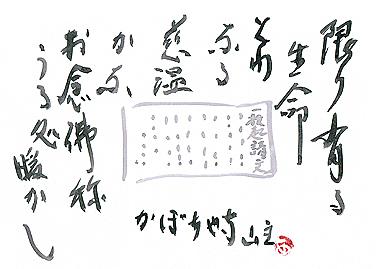 限り有る
生命
とわ
なる
慈温
かな、
お念佛称
うる 暖かし
一枚起請文
かぼちゃ寺山主